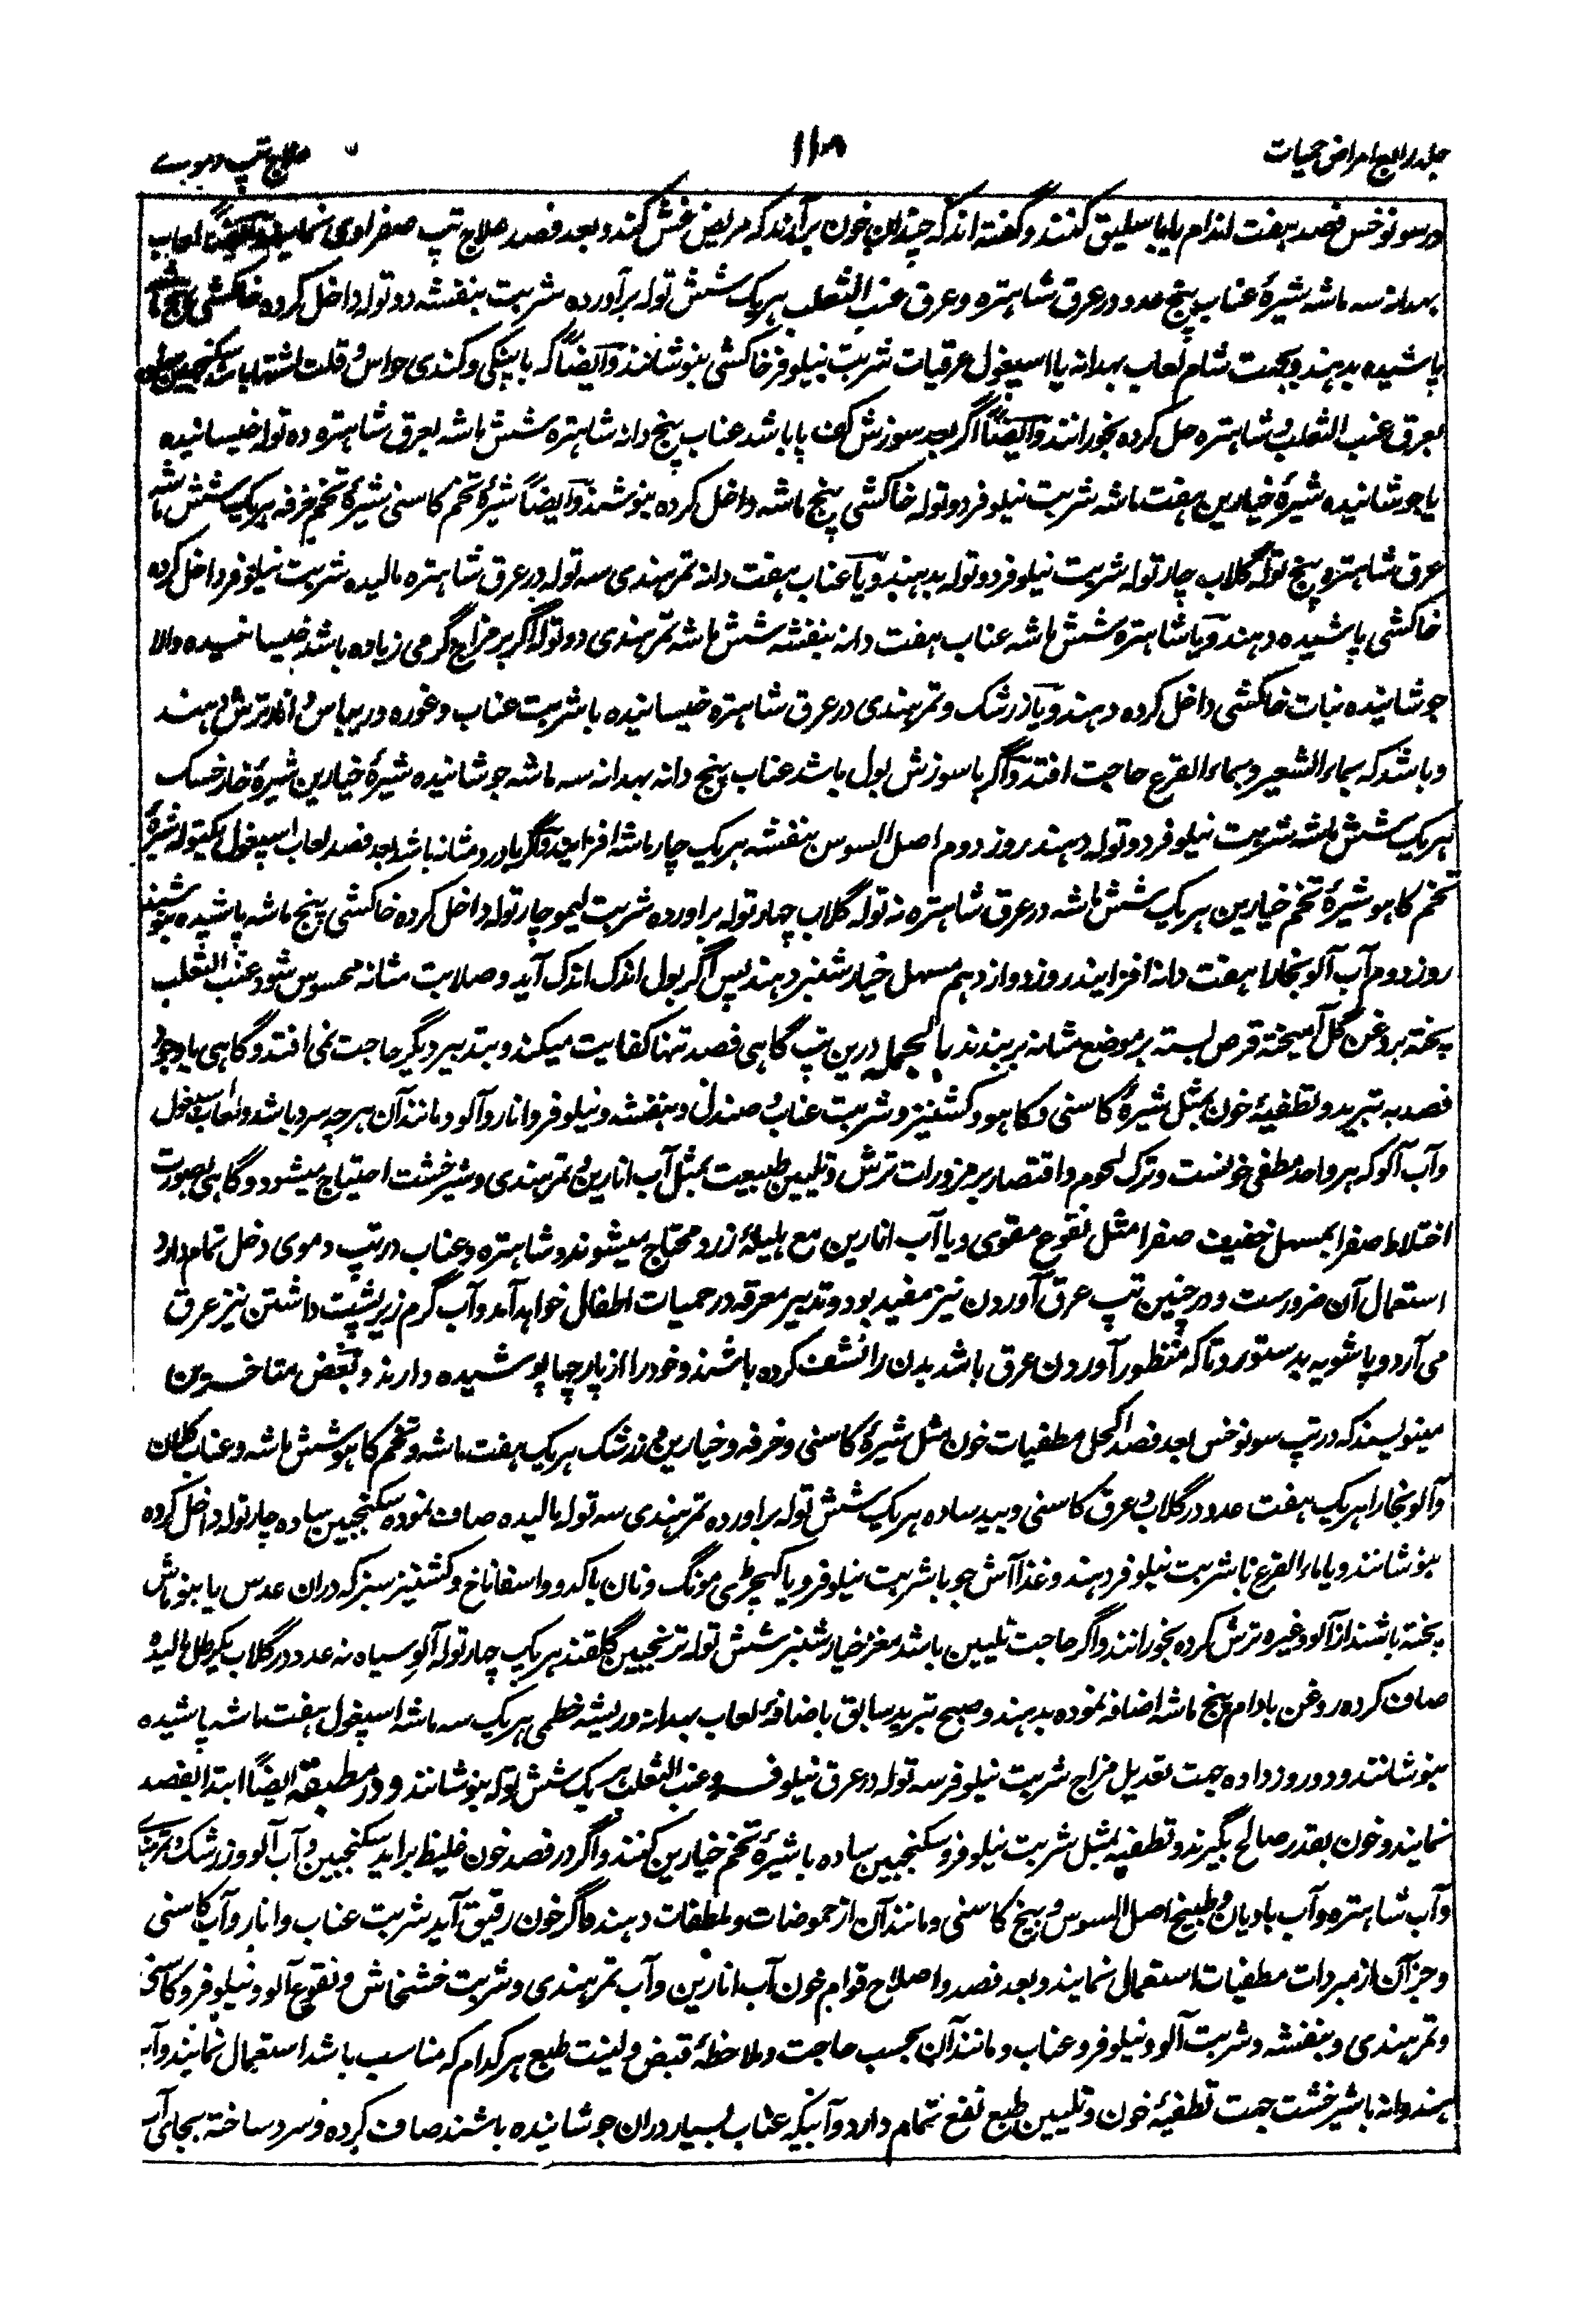 جلد رابع امراض حمیات
۱۱۳
علاج تپ دموی
در سونوخس فصد هفت اندام یا باسلیق کنند و گفته اند که چندان خون برآرند که مریض غش کند و بعد فصد علاج تپ صفراوی نمایند لعاب
بهدانه سه ماشه شیرۀ عناب پنج عدد در عرق شاهتره و عرق عنب الثعلب هریک شش توله برآورده شربت بنفشه دو توله داخل کرده خاکشی پنج ماشه
پاشیده بدهند و بجهت شام لعاب بهدانه یا اسپغول عرقیات شربت نیلوفر خاکشی بنوشانند و ایضاً که با پینکی و کندی حواس و قلت اشتها باشد سکنجبین
بعرق عنب الثعلب و شاهتره حل کرده بخورانند و ایضاً اگر بعد سوزش کف پا باشد عناب پنج دانه شاهتره شش ماشه بعرق شاهتره ده توله خیسانیده
یا جوشانیده شیرۀ خیارین هفت ماشه شربت نیلوفر دو توله خاکشی پنج ماشه داخل کرده بنوشند و ایضاً شیرۀ تخم کاسنی شیرۀ تخم خرفه هریک شش ماشه
عرق شاهتره پنج توله گلاب چار توله شربت نیلوفر دو توله بدهند و یا عناب هفت دانه تمرهندی سه توله در عرق شاهتره مالیده شربت نیلوفر داخل کرده
خاکشی پاشیده دهند و یا شاهتره شش ماشه عناب هفت دانه بنفشه شش ماشه تمرهندی دو توله اگر بر مزاج گرمی زیاده باشد خیسانیده والا
جوشانیده نبات خاکشی داخل کرده دهند و یا زرشک و تمرهندی در عرق شاهتره خیسانیده با شربت عناب و غوره و ریباس و انار ترش دهند
و باشد که بماء الشعیر و بماء القرع حاجت افتد و اگر با سوزش بول باشد عناب پنج دانه بهدانه سه ماشه جوشانیده شیرۀ خیارین شیرۀ خارخسک
هریک شش ماشه شربت نیلوفر دو توله دهند روز دوم اصل السوس بنفشه هریک چار ماشه افزایند و اگر با درد مثانه باشد بعد فصد لعاب اسپغول یکتوله شیرۀ
تخم کاهو شیرۀ تخم خیارین هریک شش ماشه در عرق شاهتره نه توله گلاب چهار توله برآورده شربت لیمو چار توله داخل کرده خاکشی پنج ماشه پاشیده بنوشند
روز دوم آب آلو بخارا هفت دانه افزایند روز دوازدهم مسهل خیارشنبر دهند پس اگر بول اندک اندک آید و صلابت مثانه محسوس شود عنب الثعلب
پخته بروغن گل آمیخته قرص بسته بر موضع مثانه بربندند بالجمله درین تپ گاهی فصد تنها کفایت میکند و بتدبیر دیگر حاجت نمی افتد و گاهی باوجود
فصد به تبرید و تطفیۀ خون بمثل شیرۀ کاسنی و کاهو و کشنیز و شربت عناب و صندل و بنفشه و نیلوفر و انار و آلو و مانند آن هرچه سرد باشد و لعاب اسپغول
و آب آلو که هر واحد مطفی خونست و ترک لحوم و اقتصار بر مزورات ترش و تلیین طبیعت بمثل آب انارین و تمرهندی و شیرخشت احتیاج میشود و گاهی بصورت
اختلاط صفرا بمسهل خفیف صفرا مثل نقوع مقوی و یا آب انارین مع هلیلۀ زرد محتاج میشوند و شاهتره و عناب در تپ دموی دخل تمام دارد
استعمال آن ضرورست و در چنین تپ عرق آوردن نیز مفید بود و تدبیر معرقه در حمیات اطفال خواهد آمد و آب گرم زیر پشت داشتن نیز عرق
می آرد و پاشویه بدستور و تا که منظور آوردن عرق باشد بدن را نشف کرده باشند و خود را از پارچها پوشیده دارند و بعض متاخرین
مینویسند که در تپ سونوخس بعد فصد اکحل مطفیات خون مثل شیرۀ کاسنی و خرفه و خیارین و زرشک هریک هفت ماشه و تخم کاهو شش ماشه و عناب کلان
و آلو بخارا هریک هفت عدد در گلاب و عرق کاسنی و بید ساده هریک شش توله برآورده تمرهندی سه توله مالیده صاف نموده سکنجبین ساده چار توله داخل کرده
بنوشانند و یا ماء القرع با شربت نیلوفر دهند و غذا آش جو با شربت نیلوفر و یا کهچڑی مونگ و نان با کدو و اسفاناخ و کشنیز سبز که دران عدس یا بنو ماش
پخته باشند از آلو وغیره ترش کرده بخورانند و اگر حاجت تلیین باشد مغز خیارشنبر شش توله ترنجبین گلقند هریک چار توله آلو سیاه نه عدد در گلاب یکرطل مالیده
صاف کرده روغن بادام پنج ماشه اضافه نموده بدهند و صبح تبرید سابق باضافۀ لعاب بهدانه و ریشه خطمی هریک سه ماشه اسپغول هفت ماشه پاشیده
بنوشانند و دو روز داده جهت تعدیل مزاج شربت نیلوفر سه توله در عرق نیلوفر و عنب الثعلب هریک شش توله بنوشانند و در مطبقه ایضاً ابتدا بفصد
نمایند و خون بقدر صالح بگیرند و تطفیه بمثل شربت نیلوفر و سکنجبین ساده با شیرۀ تخم خیارین کنند و اگر در فصد خون غلیظ براید سکنجبین و آب آلو و زرشک و تمرهندی
و آب شاهتره و آب بادیان و طبیخ اصل السوس و بیخ کاسنی و مانند آن از حموضات و ملطفات دهند و اگر خون رقیق آید شربت عناب و انار و آب کاسنی
و جز آن از مبردات مطفیات استعمال نمایند و بعد فصد و اصلاح قوام خون آب انارین و آب تمرهندی و شربت خشخاش و نقوع آلو و نیلوفر و کاسنی
و تمرهندی و بنفشه و شربت آلو و نیلوفر و عناب و مانند آن بحسب حاجت و ملاحظۀ قبض و لینت طبع هرکدام که مناسب باشد استعمال نمایند و آب
هندوانه با شیرخشت جهت تطفیۀ خون و تلیین طبع نفع تمام دارد و آبیکه عناب بسیار دران جوشانیده باشند صاف کرده و سرد ساخته بجای آب